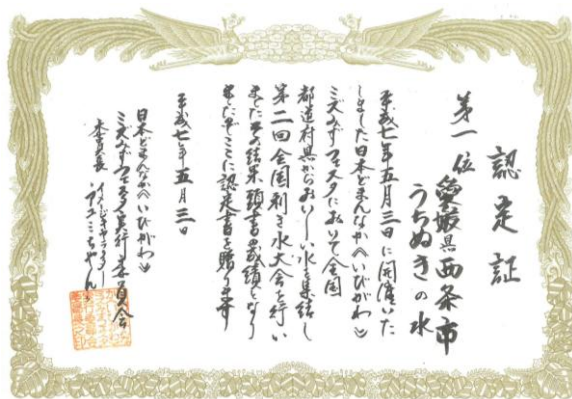 認定証
第一位
愛媛県西条市
うちぬきの水
平成七年五月三日に開催いた
しました日本どまんなかへいびがわ
ミズみずフェスタにおいて全国
都道村県からおいしい水を集結し
第二回全国利き水大会を行い
ました その結果頭書の成績となり
ましたのでここに認定書を贈ります
平成七年五月三日
日本どまんなかへいびがわ
ミズみずフェスタ実行委員会